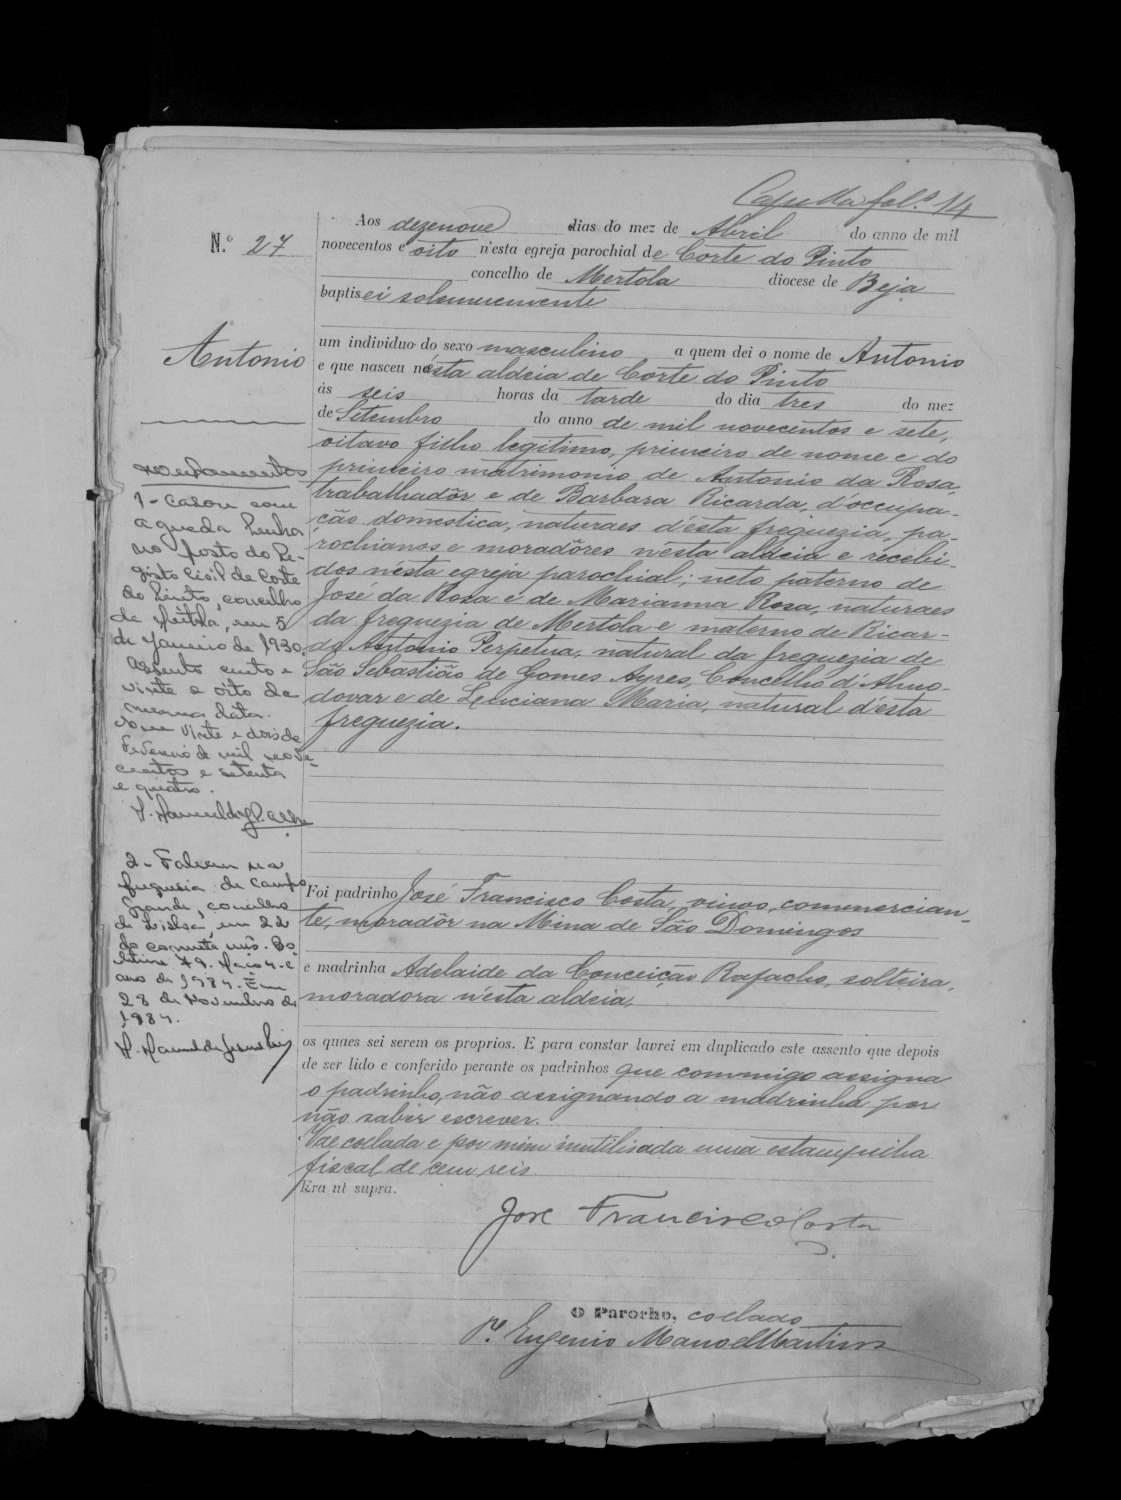 fol.º 14
N.º 27
Antonio
Aos dezenove dias do mez de Abril do anno de mil
novecentos e oito n'esta egreja parochial de Corte do Pinto
concelho de Mertola diocese de Beja
baptisei solemnemente
um individuo do sexo masculino a quem dei o nome de Antonio
e que nasceu n'ésta aldeia de Corte do Pinto
ás seis horas da tarde do dia tres do mez
de Setembro do anno de mil novecentos e sete,
oitavo filho legitimo, primeiro de nome e do
primeiro matrimonio de Antonio da Rosa,
trabalhadôr e de Barbara Ricarda, d'occupa-
ção domestica, naturaes d'ésta freguezia, pa-
rochianos e moradôres n'ésta aldeia e recebi-
dos n'ésta egreja parochial; neto paterno de
José da Rosa e de Marianna Rosa, naturaes
da freguezia de Mertola e materno de Ricar-
do Antonio Perpetua, natural da freguezia de
São Sebastião de Gomes Ayres, Concelho d'Almo-
dovar e de Luciana Maria, natural d'ésta
freguezia.
Foi padrinho José Francisco Costa, viuvo, commercian-
te, moradôr na Mina de São Domingos
e madrinha Adelaide da Conceição Rafacho, solteira,
moradora n'ésta aldeia,
os quaes sei serem os proprios. E para constar lavrei em duplicado este assento que depois
de ser lido e conferido perante os padrinhos que commigo assigna
o padrinho, não assignando a madrinha por
não saber escrever.
Vae collada e por mim inutilisada uma estampilha
fiscal de cem reis
Era ut supra.
José Francisco Costa
O Parocho, collado
P.e Eugenio Manoel Martins
Averbamentos
1 - Casou com
Agueda Penha
no posto do Re-
gisto Civil de Corte
do Pinto, concelho
de Mértola, em 5
de Janeiro de 1930,
Assento cento e
vinte e oito da
mesma data.
Em vinte e dois de
Fevereiro de mil nove-
centos e setenta
e quatro.
2 - Faleceu na
freguesia de Campo
Grande, concelho
de Lisboa, em 22
do corrente mês. Bo-
letim 79. Maço 4 - e
ano de 1984. Em
28 de Novembro de
1984.